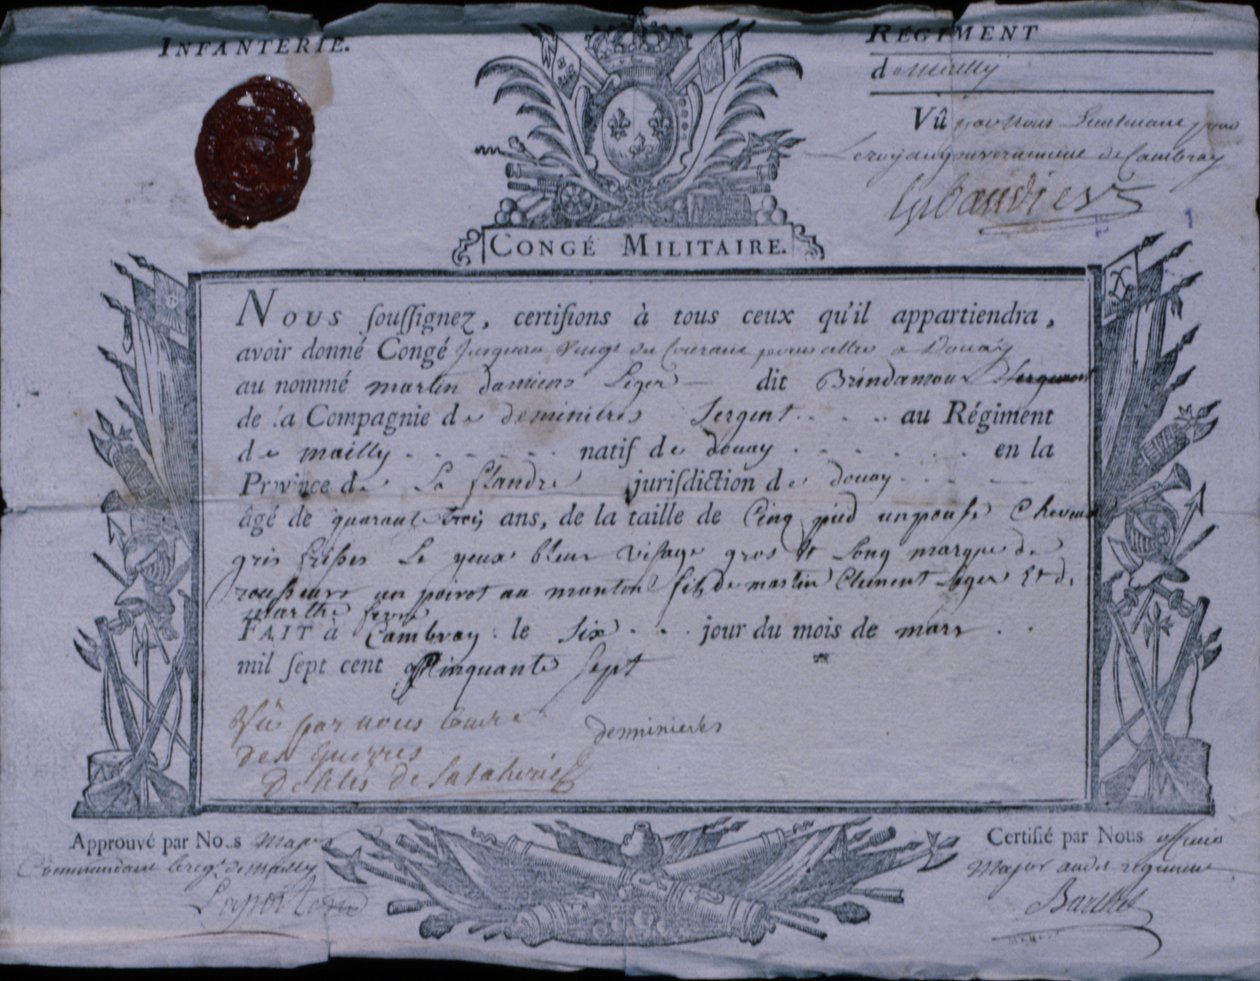 INFANTERIE.
RÉGIMENT
de Mailly
Vû par Nous Lieutenant pour
Le roy au gouvernement de Cambray
CONGÉ MILITAIRE.
NOUS souſſignez, certiſions à tous ceux qu'il appartiendra,
avoir donné Congé Jusqu'au Vingt du Courant pour aller a Douay
au nommé martin damiens Léger dit Brindamour Sergent
de la Compagnie de deminieres Sergent au Régiment
de mailly natif de douay en la
Province de La flandre juriſdiction de douay
âgé de quarant trois ans, de la taille de Cinq pied un pousse Cheveux
gris Le yeux bleux visage gros et Long marque de
rousseurs un poirot au manton fils de martin Clement Leger Et de
marthe
FAIT à Cambray le six jour du mois de mars
mil ſept cent Cinquante Sept
Vû par nous
des guerres
deminieres
Approuvé par Nous Major
Commandant le reg.t de mailly
Certifié par Nous officier
Major audit regiment